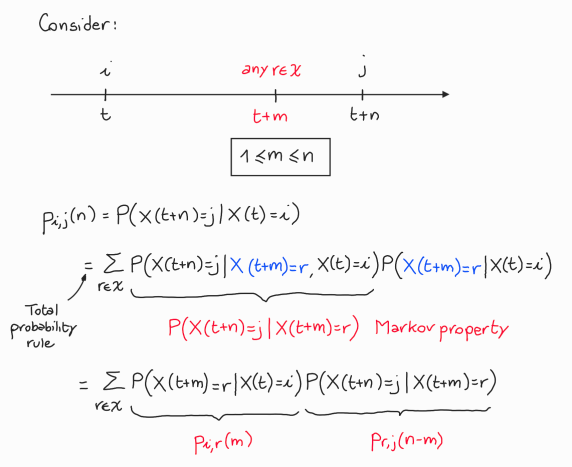 Consider:
i any r∈X j
t t+m t+n
1≤m≤n
p_{i,j}(n) = P(X(t+n)=j|X(t)=i)
= ∑_{r∈X} P(X(t+n)=j|X(t+m)=r, X(t)=i)P(X(t+m)=r|X(t)=i)
Total
probability
rule
P(X(t+n)=j|X(t+m)=r) Markov property
= ∑_{r∈X} P(X(t+m)=r|X(t)=i)P(X(t+n)=j|X(t+m)=r)
p_{i,r}(m) p_{r,j}(n-m)